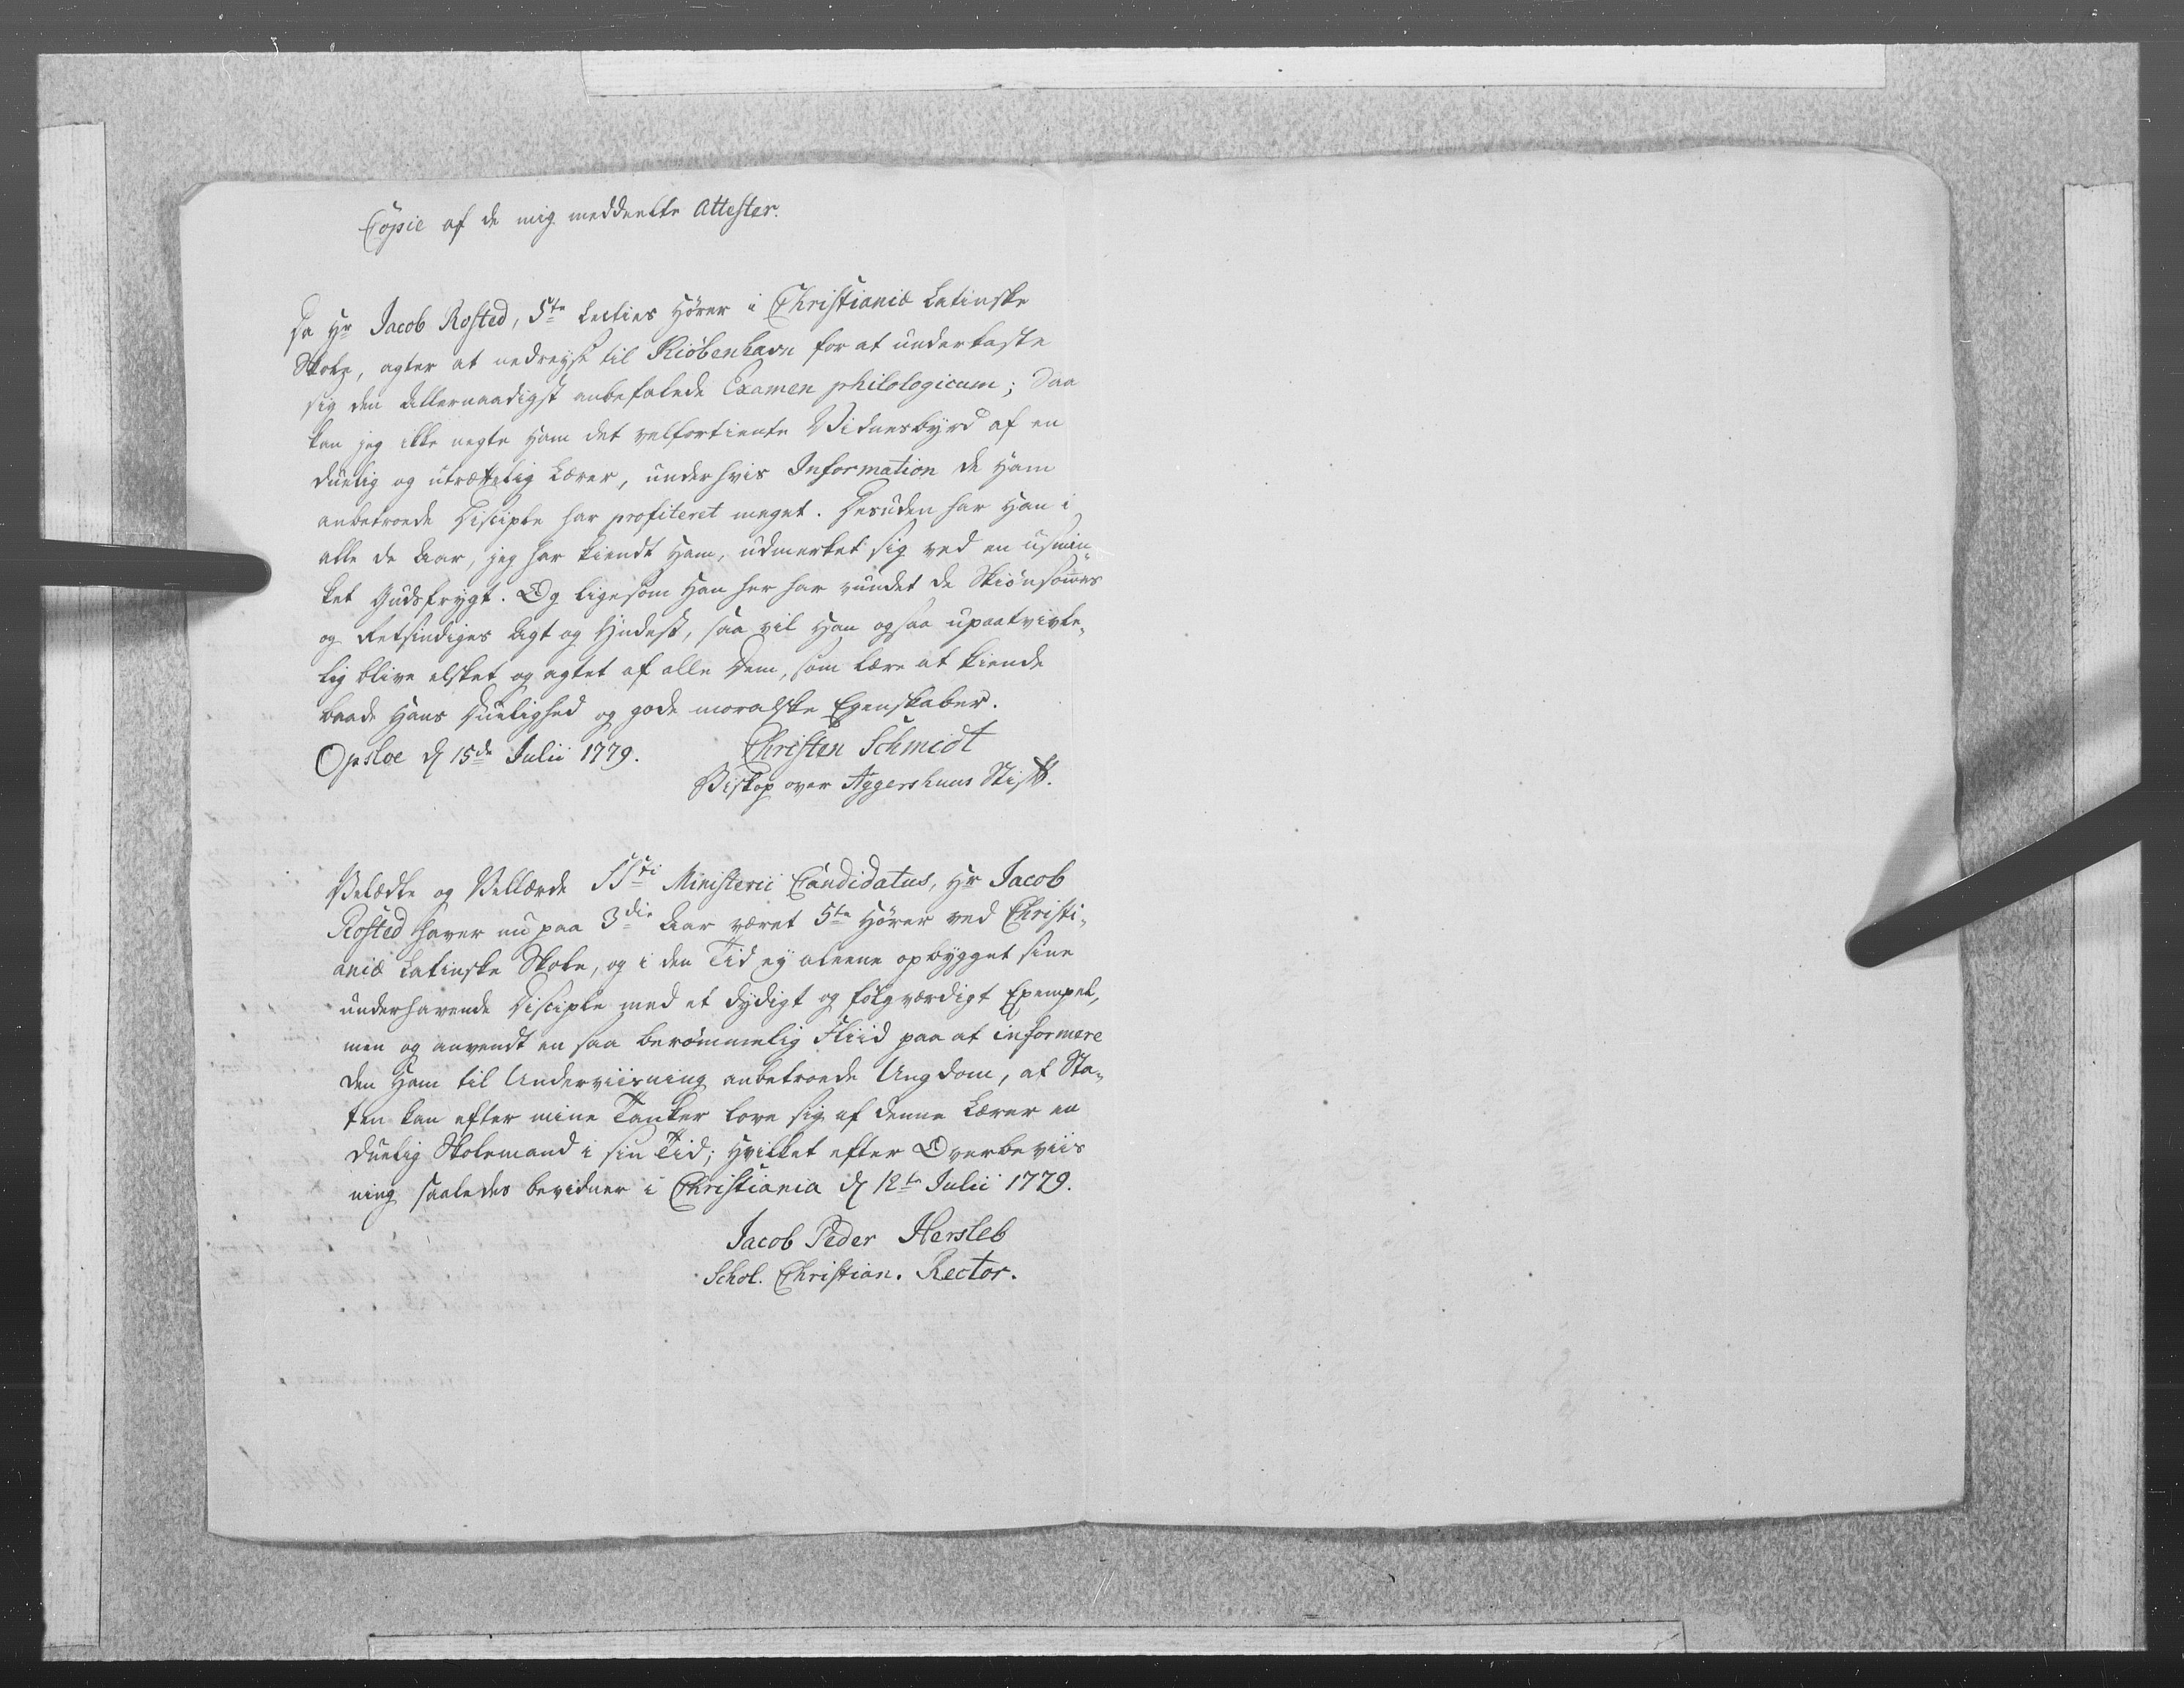 Copie af de mig meddeelte Attester.
Da Hr Jacob Rosted, 5te Lecties Hører i Christianiæ Latinske
Skole, agter at nedreyse til Kiöbenhavn for at underkaste
sig den Allernaadigst anbefalede Examen philologicum; Saa
kan jeg ikke negte Ham det velfortiente Vidnesbyrd af en
duelig og utrættelig Lærer, under hvis Information de Ham
anbetroede Disciple har profiteret meget. Desuden har Han i
alle de Aar, jeg har kiendt Ham, udmerket sig ved en usmin-
ket Gudsfrygt. Og ligesom Han her har vundet de Skiønsommes
og Retsindiges Agt og Yndest, saa vil Han ogsaa upaatvivle-
lig blive elsket og agtet af alle Dem, som lære at kiende
baade Hans Duelighed og gode moralske Egenskaber.
Opsloe d 15de Julii 1779. Christen Schmidt
Biskop over Aggershuus Stift.
Velædle og Vellærde SSti Ministerii Candidatus, Hr Jacob
Rosted haver nu paa 3die Aar været 5te Hører ved Christi-
aniæ Latinske Skole, og i den Tid ey aleene opbygget sine
underhavende Disciple med et dydigt og følgværdigt Exempel,
men og anvendt en saa berömmelig Fliid paa at informere
den Ham til Underviisning anbetroede Ungdom, at Sta-
ten kan efter mine Tanker love sig af denne Lærer en
duelig Skolemand i sin Tid; Hvilket efter Overbeviis
ning saaledes bevidner i Christiania d 12te Julii 1779.
Jacob Peder Hersleb
Schol. Christian. Rector.